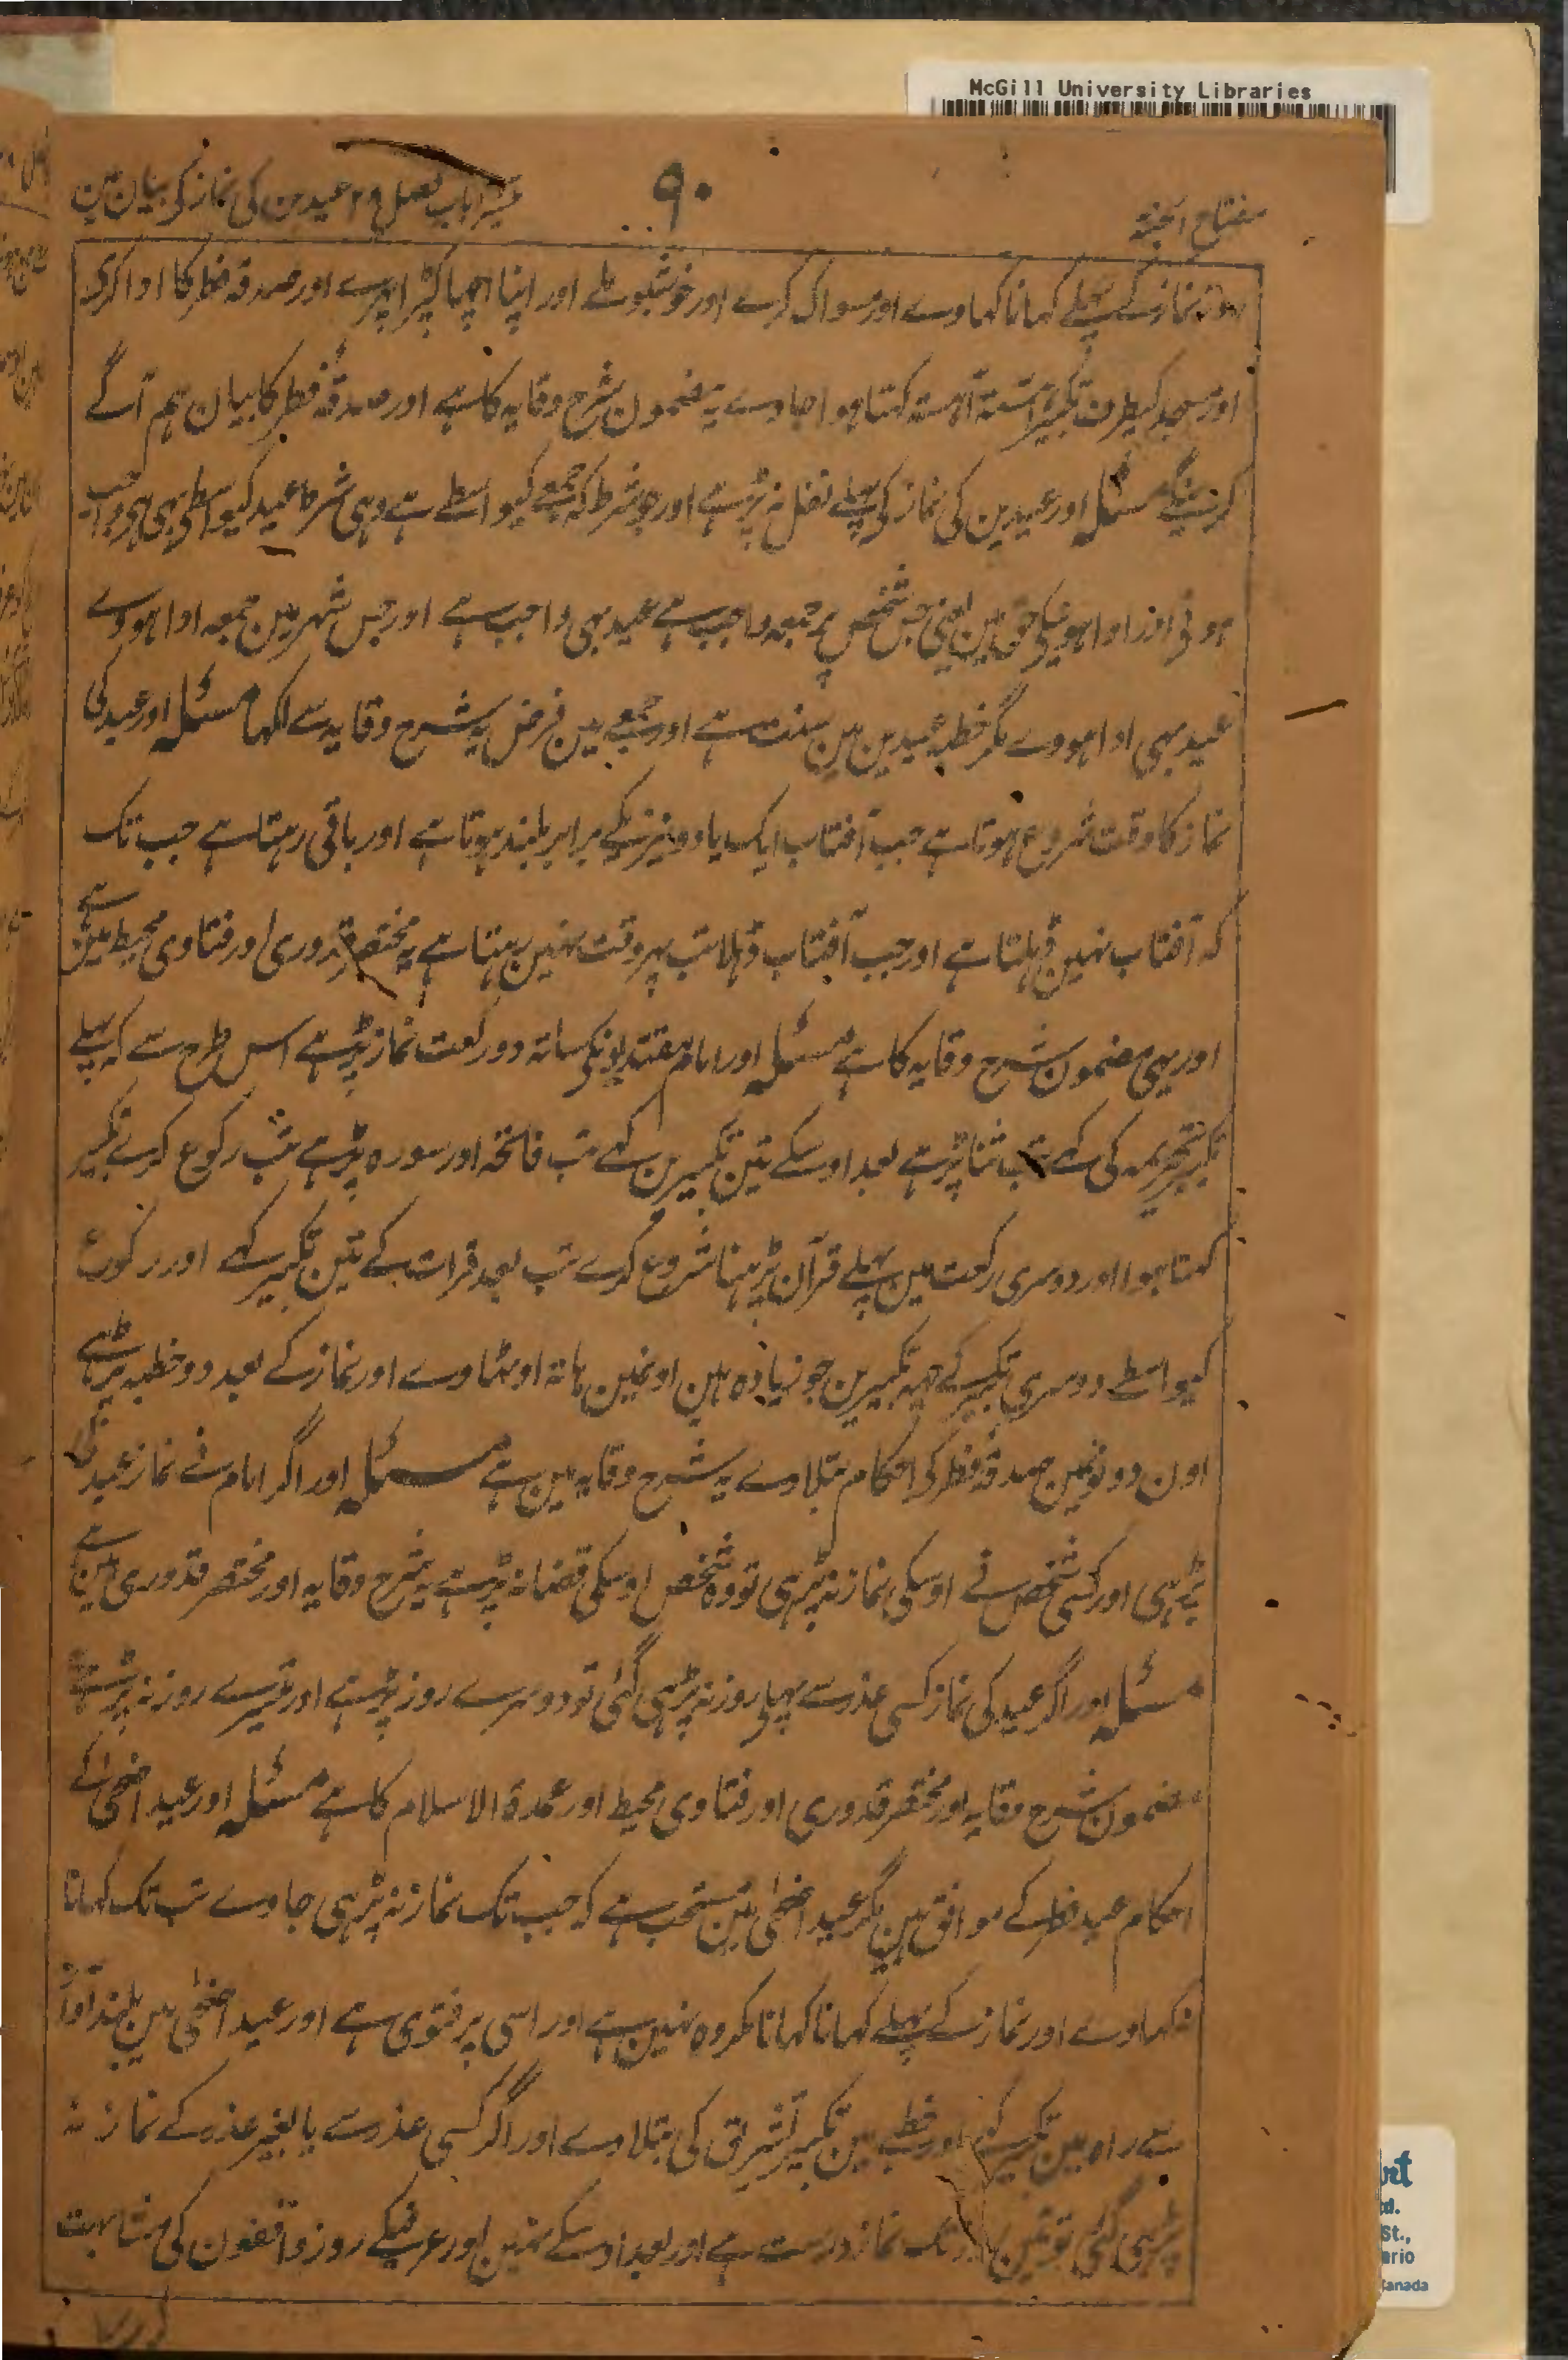 McGill University Libraries
مفتاح الجنۃ
۹۰
تیسرا باب فصل ۲۵ عیدین کی نماز کی بیان مین
روز نماز کے پہلے کہانا کہاوے اور مسواک کرے اور خوشبو ملے اور اپنا اچہا کپڑا پہرے اور صدقہ فطر کا ادا کری
اور مسجد کیطرف تکبیر آہستہ آہستہ کہتا ہوا جاوے یہ مضمون شرح وقایہ کا ہے اور صدقۂ فطر کا بیان ہم آگے
کرینگے مسئلہ اور عیدین کی نماز کی پہلے نفل نہ پڑہے اور جو شرط کہ جمعے کیواسطے ہے وہی شرط عید کیواسطے بہی ہی واجب
ہونی اور ادا ہونیکی حق مین یعنی جس شخص پر جمعہ واجب ہے عید بہی واجب ہے اور جس شہر مین جمعہ ادا ہووے
عید بہی ادا ہووے مگر خطبہ عیدین مین سنت ہے اور جمعے مین فرض یہ شرح وقایہ سے لکہا مسئلہ اور عید کی
نماز کا وقت شروع ہوتا ہے جب آفتاب ایک یا دو نیزیکے برابر بلند ہوتا ہے اور باقی رہتا ہے جب تک
کہ آفتاب نہین ڈہلتا ہے اور جب آفتاب ڈہلا تب پہر وقت نہین رہتا ہے یہ مختصر قدوری اور فتاوی محیط مین ہے
اور یہی مضمون شرح وقایہ کا ہے مسئلہ اور امام مقتدیونکی ساتہ دو رکعت نماز پڑہے اس طرح سے کہ پہلے
تکبیر تحریمہ کی کہے تب ثنا پڑہے بعد اوسکے تین تکبیرین کہے تب فاتحہ اور سورہ پڑہے تب رکوع کرے تکبیر
کہتا ہوا اور دوسری رکعت مین پہلے قرآن پڑہنا شروع کرے تب بعد قرات کے تین تکبیر کہے اور رکوع
کیواسطے دوسری تکبیر کہے چہہ تکبیرین جو زیادہ ہین اونمین ہاتہ اوٹہاوے اور نماز کے بعد دو خطبہ پڑہے
اون دونونمین صدقۂ فطر کی احکام بتلاوے یہ شرح وقایہ مین ہے مسئلہ اور اگر امام نے نماز عید کی
پڑہی اور کسی شخص نے اوسکی نماز نہ پڑہی تو وہ شخص اوسکی قضا نہ پڑہے یہ شرح وقایہ اور مختصر قدوری مین ہے
مسئلہ اور اگر عید کی نماز کسی عذر سے پہلی روز نہ پڑہی گئی تو دوسرے روز پڑہے اور تیسرے روز نہ پڑہے
مضمون شرح وقایہ اور مختصر قدوری اور فتاوی محیط اور عمدۃ الاسلام کا ہے مسئلہ اور عید اضحیٰ کے
احکام عید فطر کے موافق ہین مگر عید اضحیٰ مین مستحب ہے کہ جب تک نماز نہ پڑہی جاوے تب تک کہانا
نکہاوے اور نماز کے پہلے کہانا کہانا مکروہ نہین ہے اور اسی پر فتوی ہے اور عید اضحیٰ مین بلند آواز
سے راہ مین تکبیر کہے اور خطبے مین تکبیر تشریق کی بتلاوے اور اگر کسی عذر سے یا بغیر عذر کے نماز نہ
پڑہی گئی تو تین روز تک نماز درست ہے اور بعد اوسکے نہین اور عرفیکے روز واقفون کی مشابہت
St.,
ario
Canada